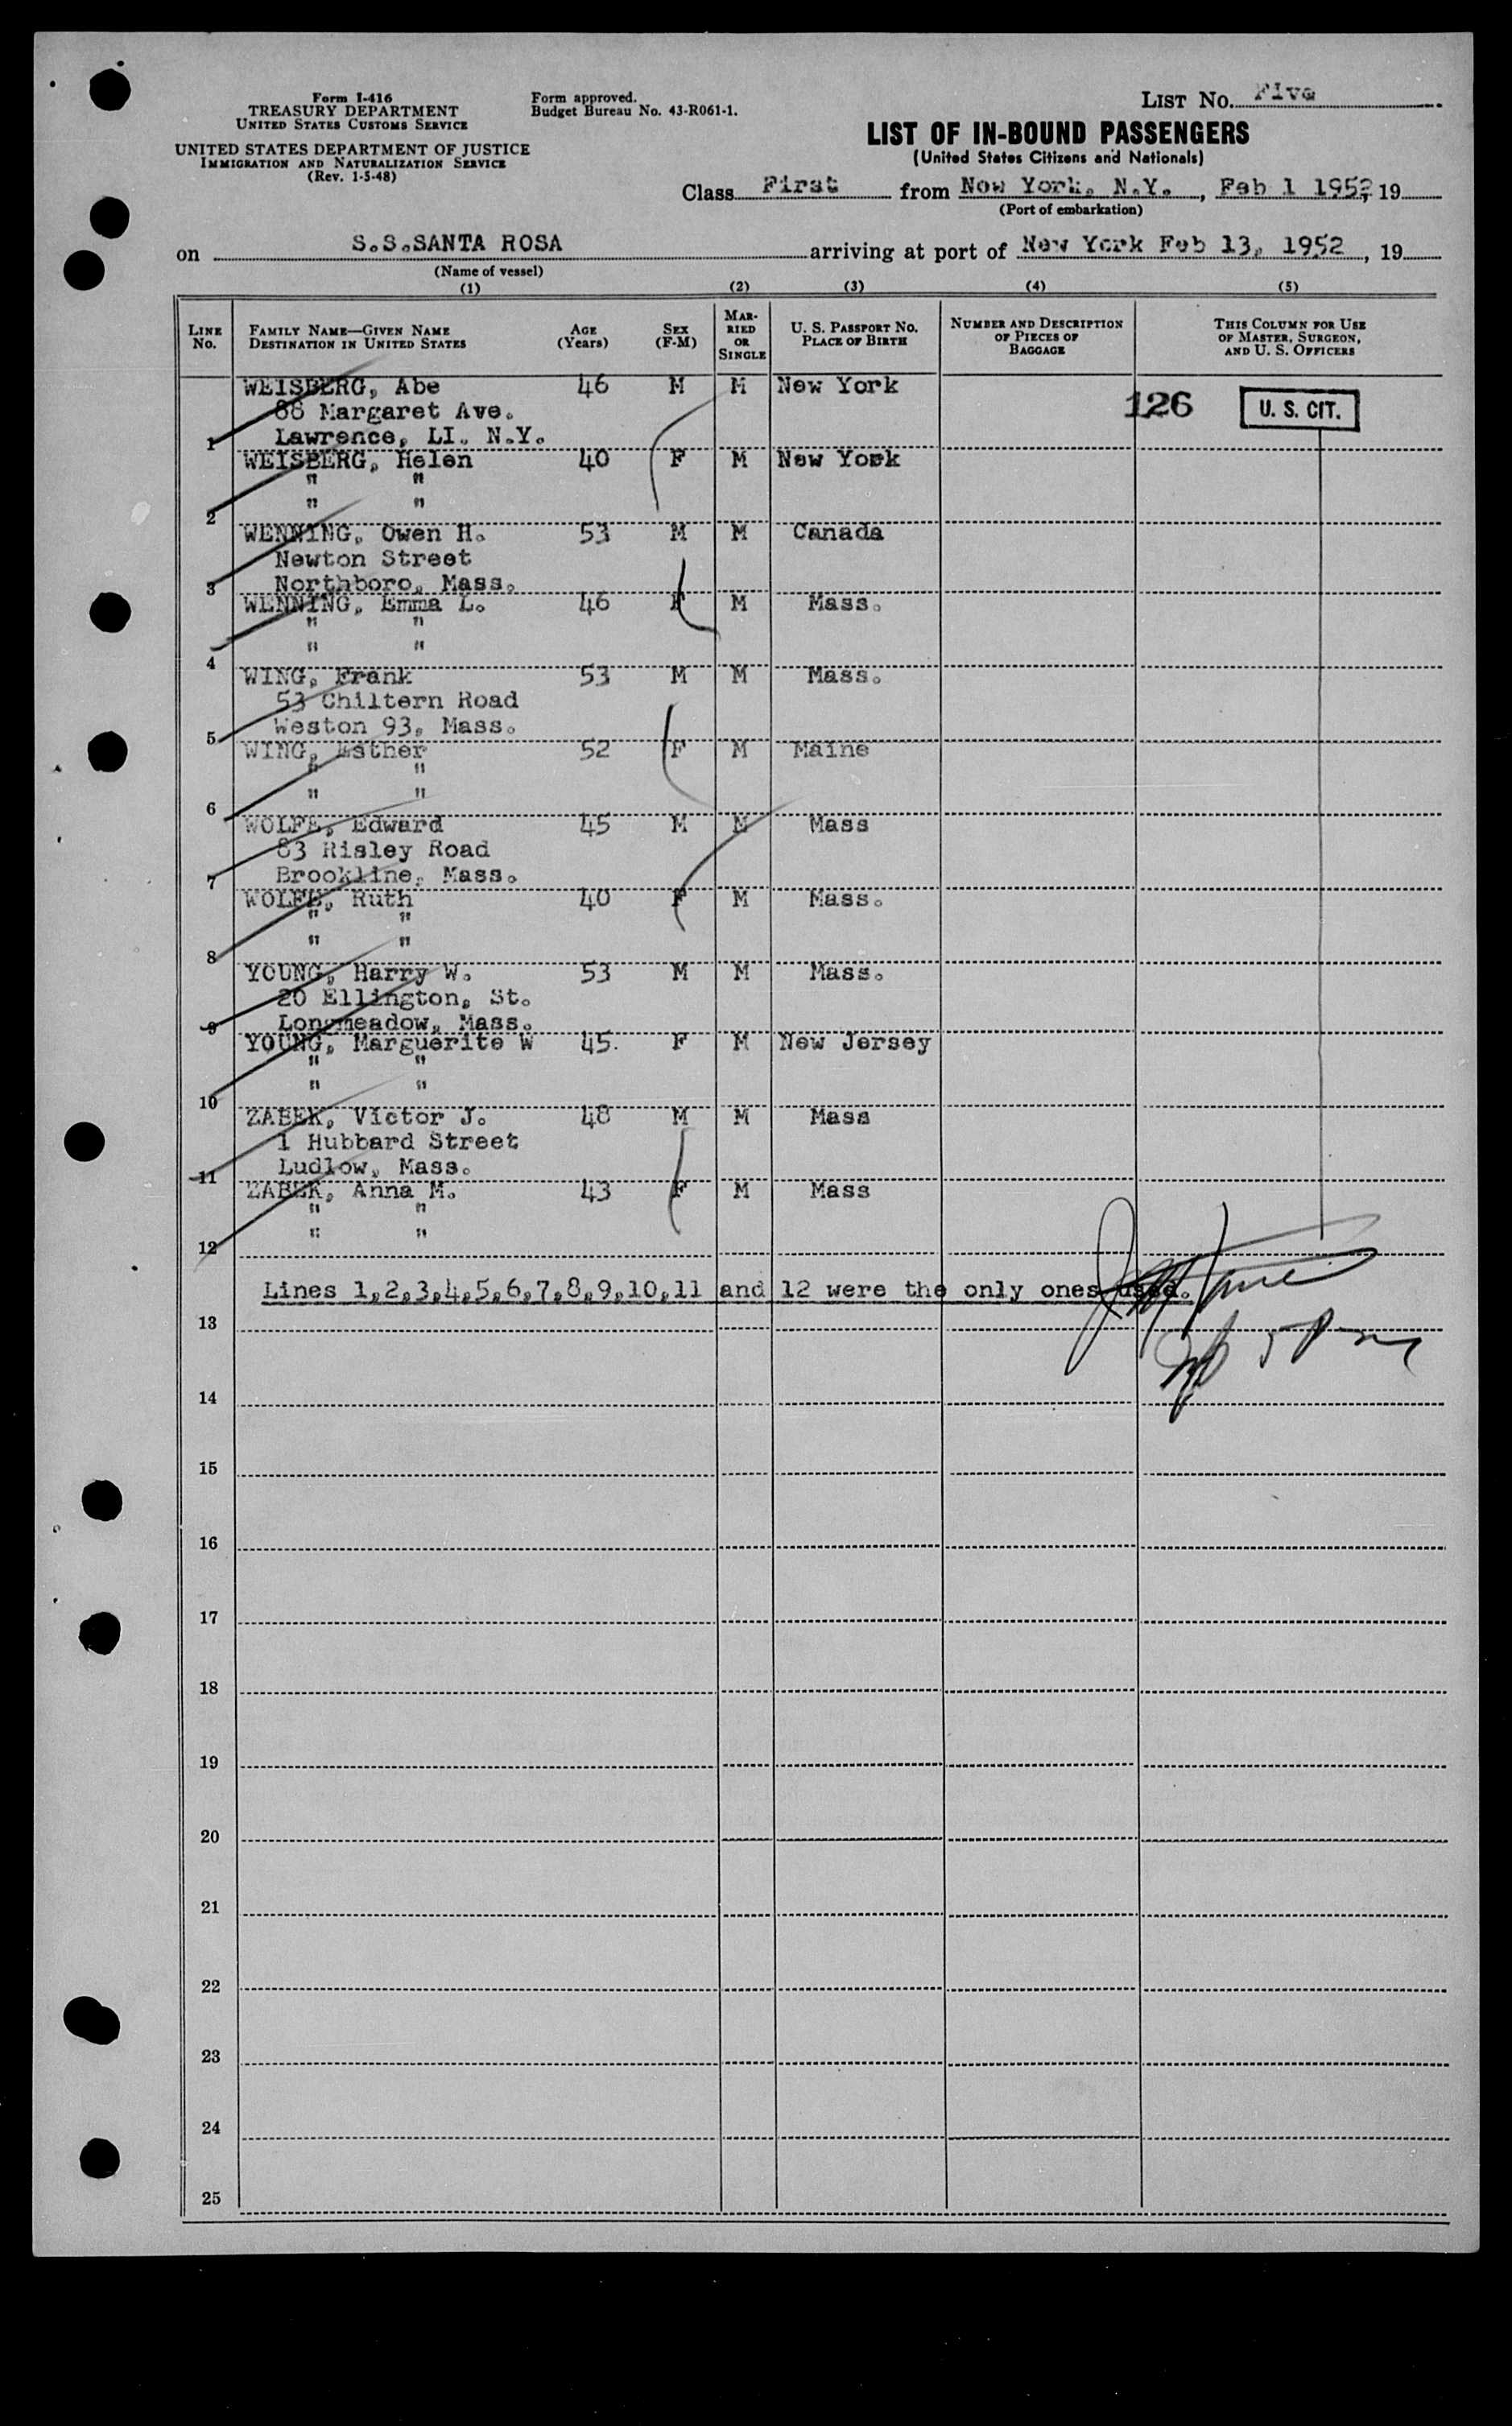 Form I-416
TREASURY DEPARTMENT
UNITED STATES CUSTOMS SERVICE
UNITED STATES DEPARTMENT OF JUSTICE
IMMIGRATION AND NATURALIZATION SERVICE
(Rev. 1-5-48)
Form approved.
Budget Bureau No. 43-R061-1.
LIST No. Five
LIST OF IN-BOUND PASSENGERS
(United States Citizens and Nationals)
Class First from New York, N.Y., Feb 1 1952, 19
(Port of embarkation)
on S.S.SANTA ROSA arriving at port of New York Feb 13, 1952, 19
(Name of vessel)
(1) (2) (3) (4) (5)
LINE No. FAMILY NAME—GIVEN NAME DESTINATION IN UNITED STATES AGE (Years) SEX (F-M) MARRIED OR SINGLE U. S. PASSPORT No. PLACE OF BIRTH NUMBER AND DESCRIPTION OF PIECES OF BAGGAGE THIS COLUMN FOR USE OF MASTER, SURGEON, AND U. S. OFFICERS
WEISBERG, Abe 46 M M New York
88 Margaret Ave. 126 U. S. CIT.
1 Lawrence, LI. N.Y.
WEISBERG, Helen 40 F M New York
" "
2 " "
WENNING, Owen H. 53 M M Canada
Newton Street
3 Northboro, Mass.
WENNING, Emma L. 46 F M Mass.
" "
4 " "
WING, Frank 53 M M Mass.
53 Chiltern Road
5 Weston 93, Mass.
WING, Esther 52 F M Maine
" "
6 " "
WOLFE, Edward 45 M M Mass
83 Risley Road
7 Brookline, Mass.
WOLFE, Ruth 40 F M Mass.
" "
8 " "
YOUNG, Harry W. 53 M M Mass.
20 Ellington, St.
9 Longmeadow, Mass.
YOUNG, Marguerite W 45. F M New Jersey
" "
10 " "
ZABEK, Victor J. 48 M M Mass
1 Hubbard Street
11 Ludlow, Mass.
ZABEK, Anna M. 43 F M Mass
" "
12 " "
Lines 1,2,3,4,5,6,7,8,9,10,11 and 12 were the only ones used.
13
14
15
16
17
18
19
20
21
22
23
24
25